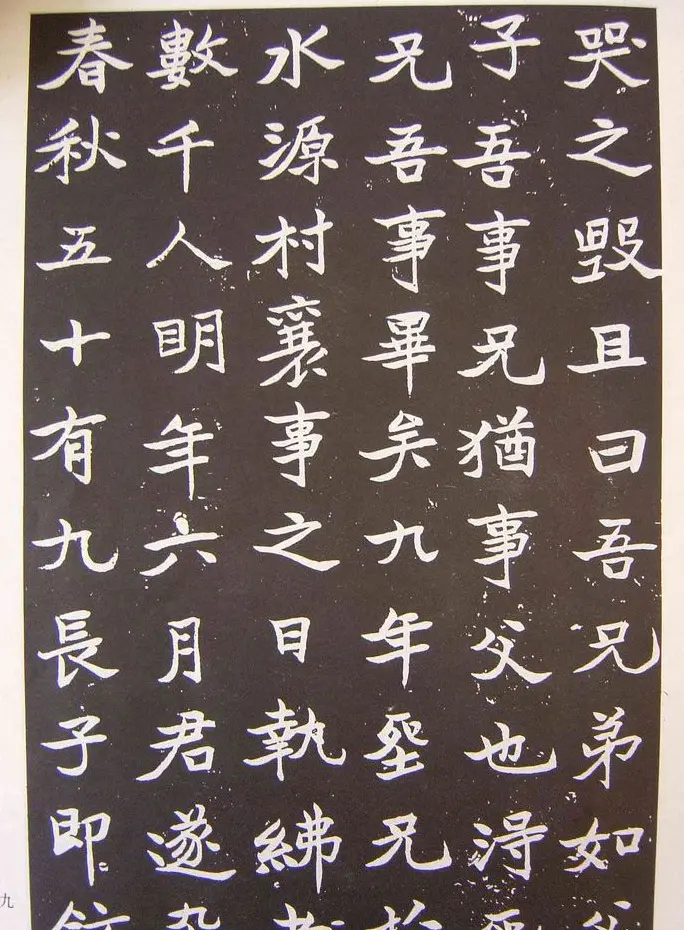 哭之毀且曰吾兄弟如父
子吾事兄猶事父也淂
兄吾事畢矣九年堲兄於
水源村襄事之日執紼者
數千人明年六月君遂卒
春秋五十有九長子即
九